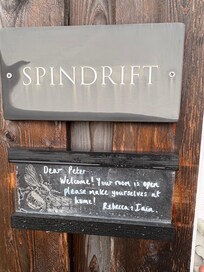 SPINDRIFT
Dear Peter
Welcome! Your room is open
please make yourselves at
home!
Rebecca + Iain.